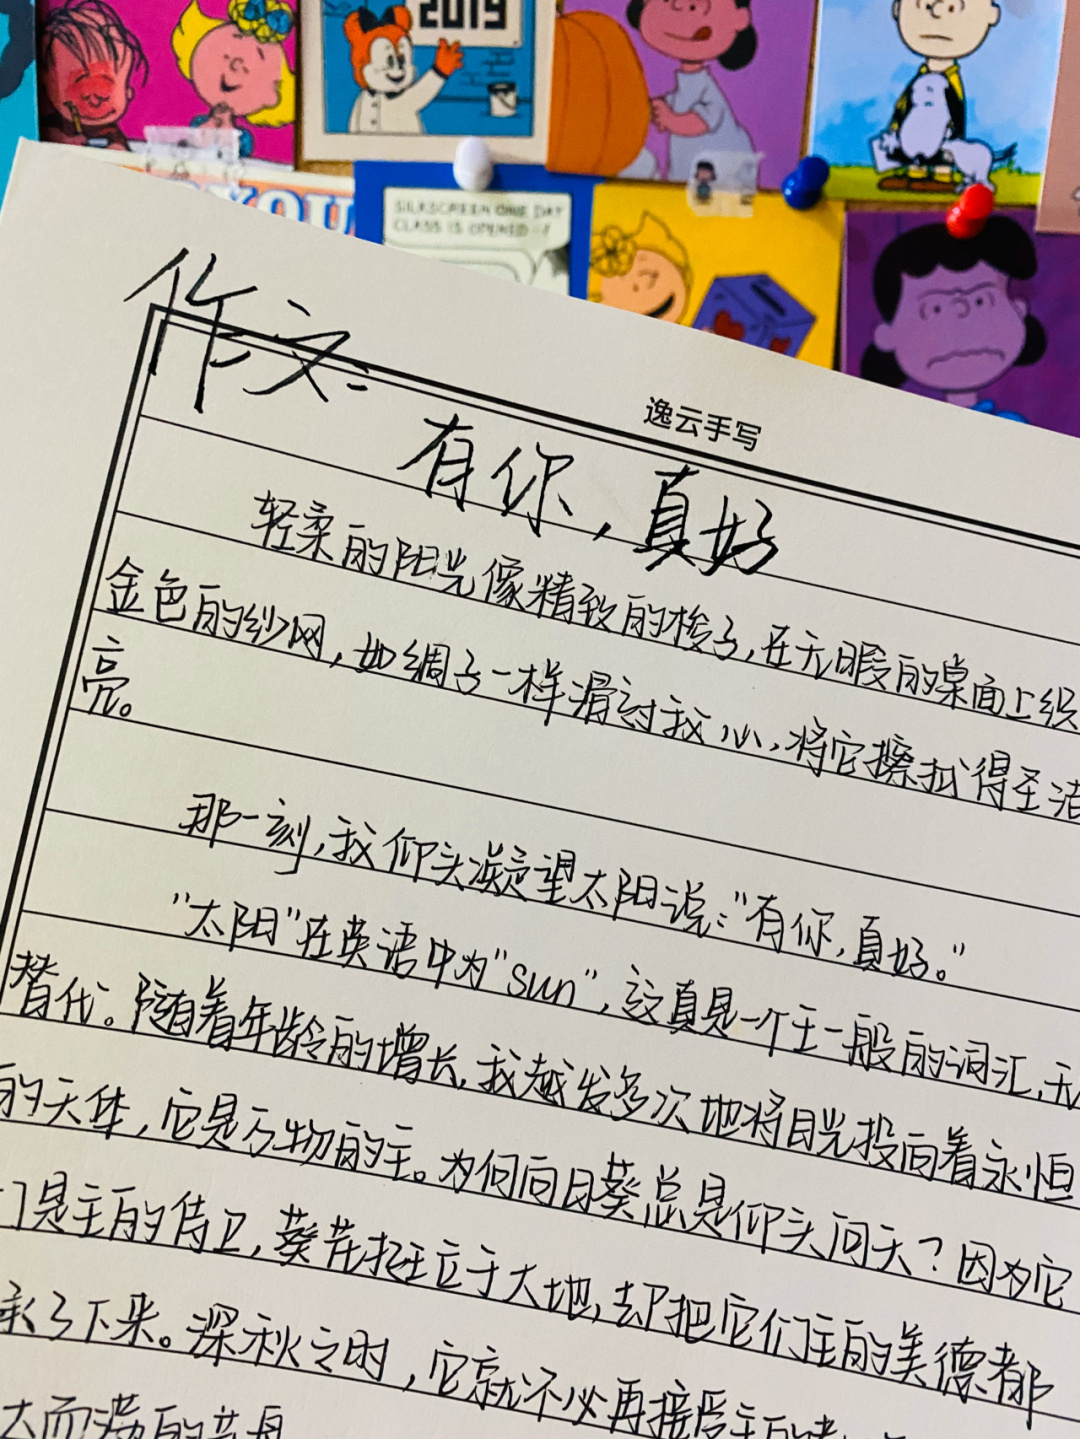 2019
YOU
SILKSCREEN ONE DAY
CLASS IS OPENED--!
作文:
逸云手写
有你,真好
轻柔的阳光像精致的梭子,在无暇的桌面上织
金色的纱网,如绸子一样滑过我心,将它擦拭得圣洁
亮。
那一刻,我仰头凝望太阳说:"有你,真好。"
"太阳"在英语中为"sun",这真是一个王一般的词汇,无
替代。随着年龄的增长,我越发多次地将目光投向着永恒
的天体,它是万物的主。为何向日葵总是仰头问天?因为它
们是主的侍卫,葵花挺立于大地,却把它们主的美德都
承了下来。深秋之时,它就不必再接受主的